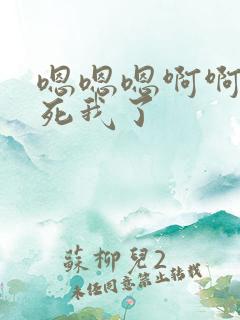 嗯嗯嗯啊啊
死我了
蘇柳兒2
未经同意禁止转载